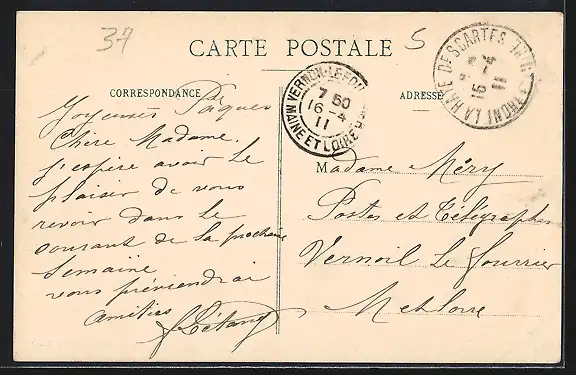 37
5
CARTE POSTALE
CORRESPONDANCE
ADRESSE
VERNOIL-LE-FOU
7 50
16 -4
11
MAINE ET LOIRE
LA HAYE DESCARTES
16
11
Joyeuses Pâques
Chère Madame,
J'espère avoir le
plaisir de vous
revoir dans le
courant de la prochaine
semaine
vous préviendrai
amitiés
Madame Méry
Postes et Télégraphes
Vernoil le Fourrier
M et Loire